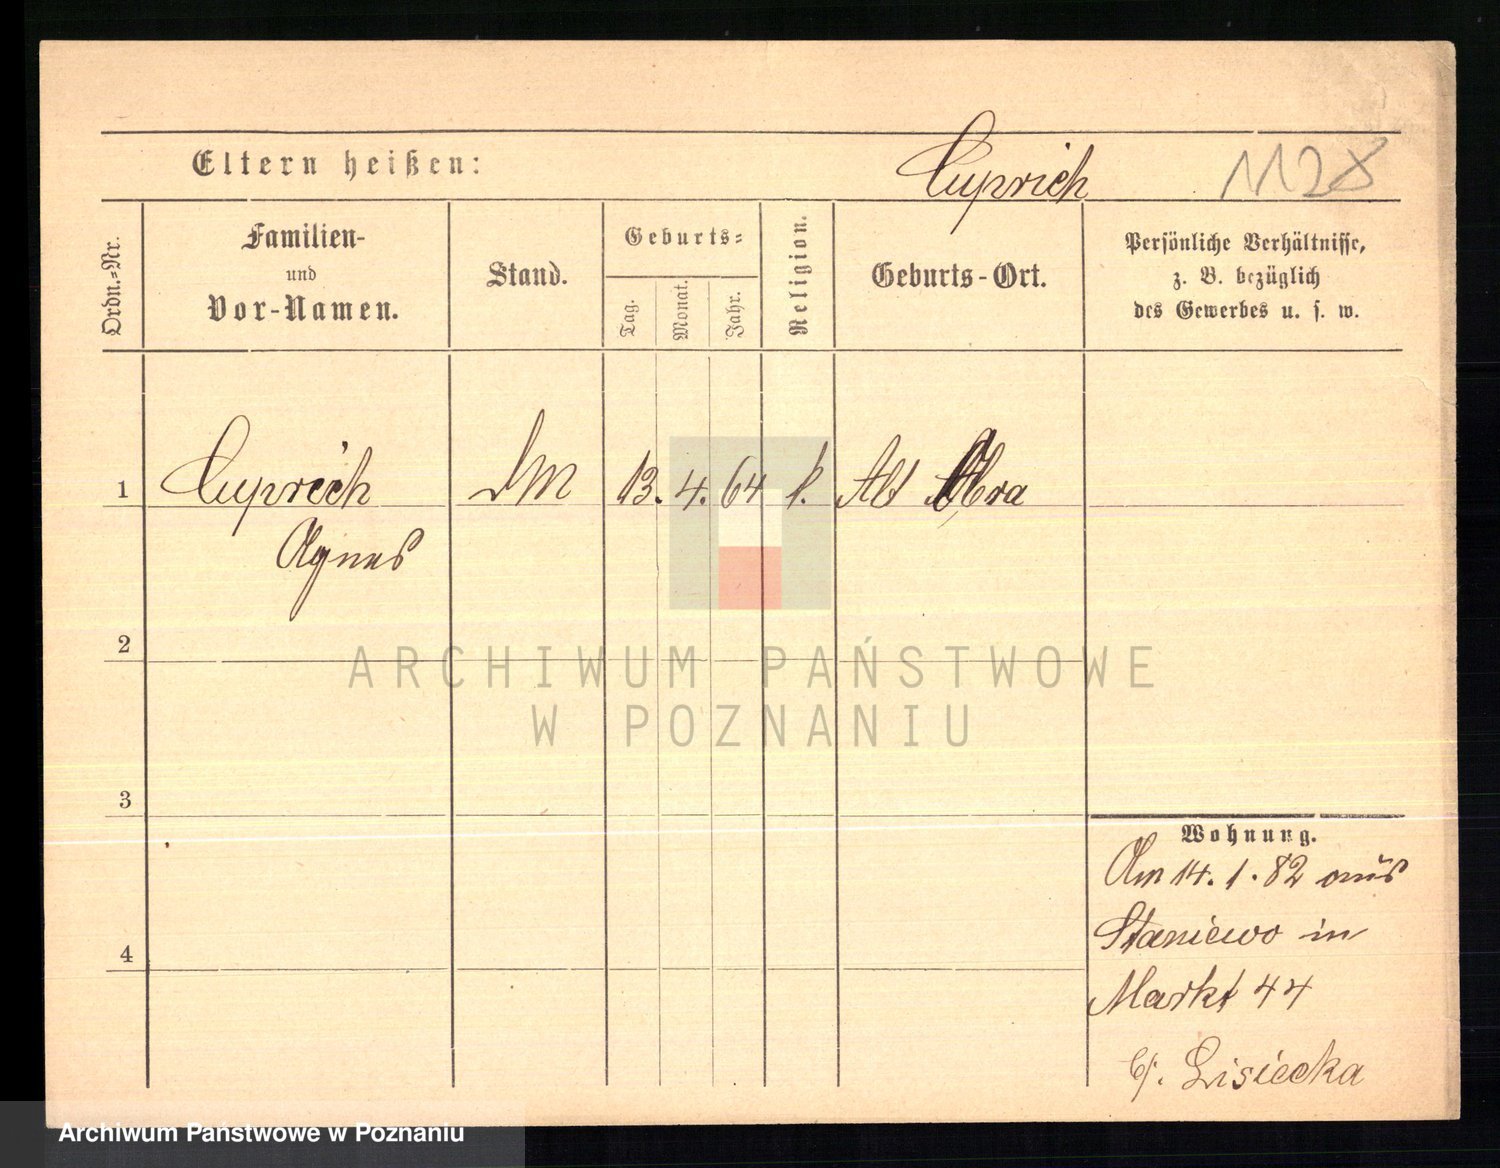 Eltern heißen:
Cuprich
1128
Ordn.-Nr.
Familien-
und
Vor-Namen.
Stand.
Geburts-
Tag.
Monat.
Jahr.
Religion.
Geburts-Ort.
Persönliche Verhältnisse,
z. B. bezüglich
des Gewerbes u. s. w.
1 Cuprich 13. 4. 64 Alt Obra
Agnes
2
ARCHIWUM PAŃSTWOWE
W POZNANIU
3
Wohnung.
Am 14. 1. 82 aus
Staniewo in
4
Markt 44
b/. Lisiecka
Archiwum Państwowe w Poznaniu